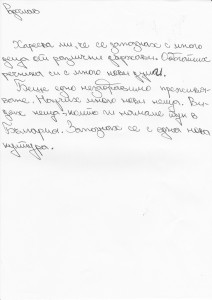 Хареса ми, че се запознах с много
деца от различни държави. Обогатих
речника си с много нови думи.
Беше едно незабравимо преживя-
ване. Научих много нови неща. Ви-
дях неща, които ги нямаме тук в
България. Запознах се с една нова
култура.